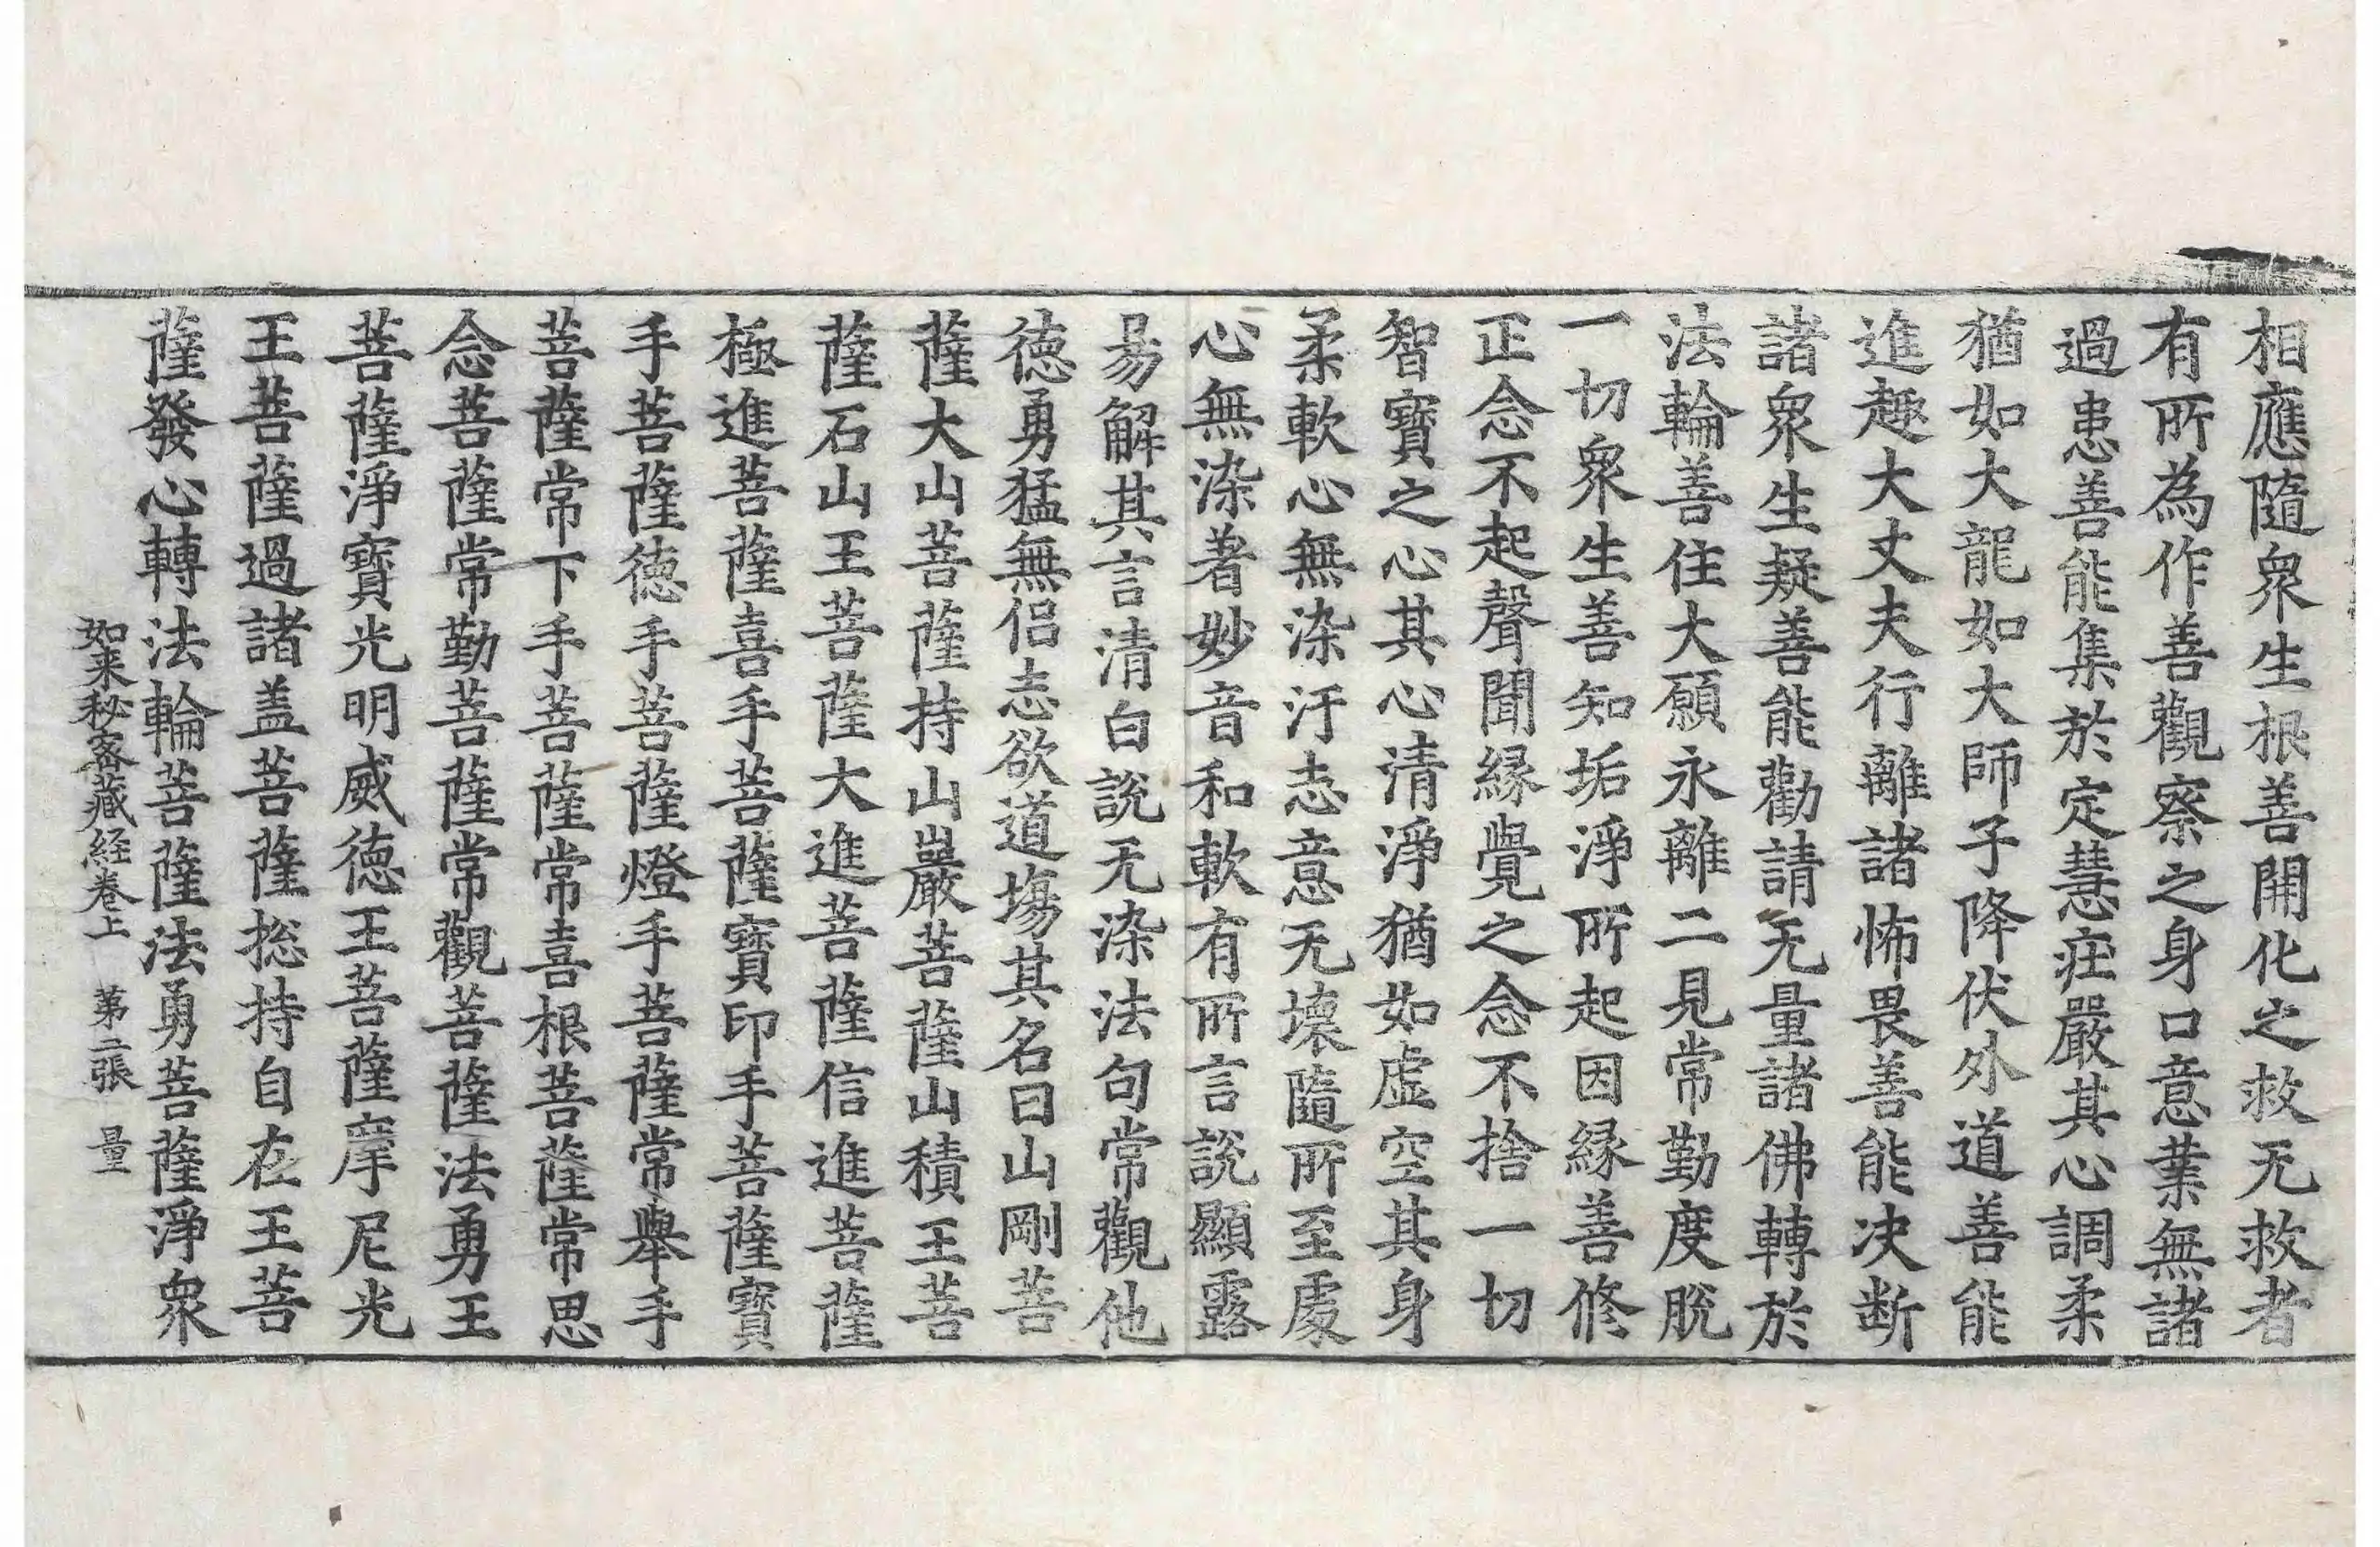 相應隨衆生根善開化之救无救者
有所為作善觀察之身口意業無諸
過患善能集於定慧庄嚴其心調柔
猶如大龍如大師子降伏外道善能
進趣大丈夫行離諸怖畏善能决断
諸衆生疑善能勸請无量諸佛轉於
法輪善住大願永離二見常勤度脫
一切衆生善知垢淨所起因緣善修
正念不起聲聞緣覺之念不捨一切
智寶之心其心清淨猶如虛空其身
柔軟心無染汙志意无壞隨所至處
心無染著妙音和軟有所言說顯露
易解其言清白說无染法句常觀他
德勇猛無侶志欲道塲其名曰山剛菩
薩大山菩薩持山巖菩薩山積王菩
薩石山王菩薩大進菩薩信進菩薩
極進菩薩喜手菩薩寶印手菩薩寶
手菩薩德手菩薩燈手菩薩常舉手
菩薩常下手菩薩常喜根菩薩常思
念菩薩常勤菩薩常觀菩薩法勇王
菩薩淨寶光明威德王菩薩摩尼光
王菩薩過諸盖菩薩捴持自在王菩
薩發心轉法輪菩薩法勇菩薩淨衆
如来秘密藏経卷上 第二張 量